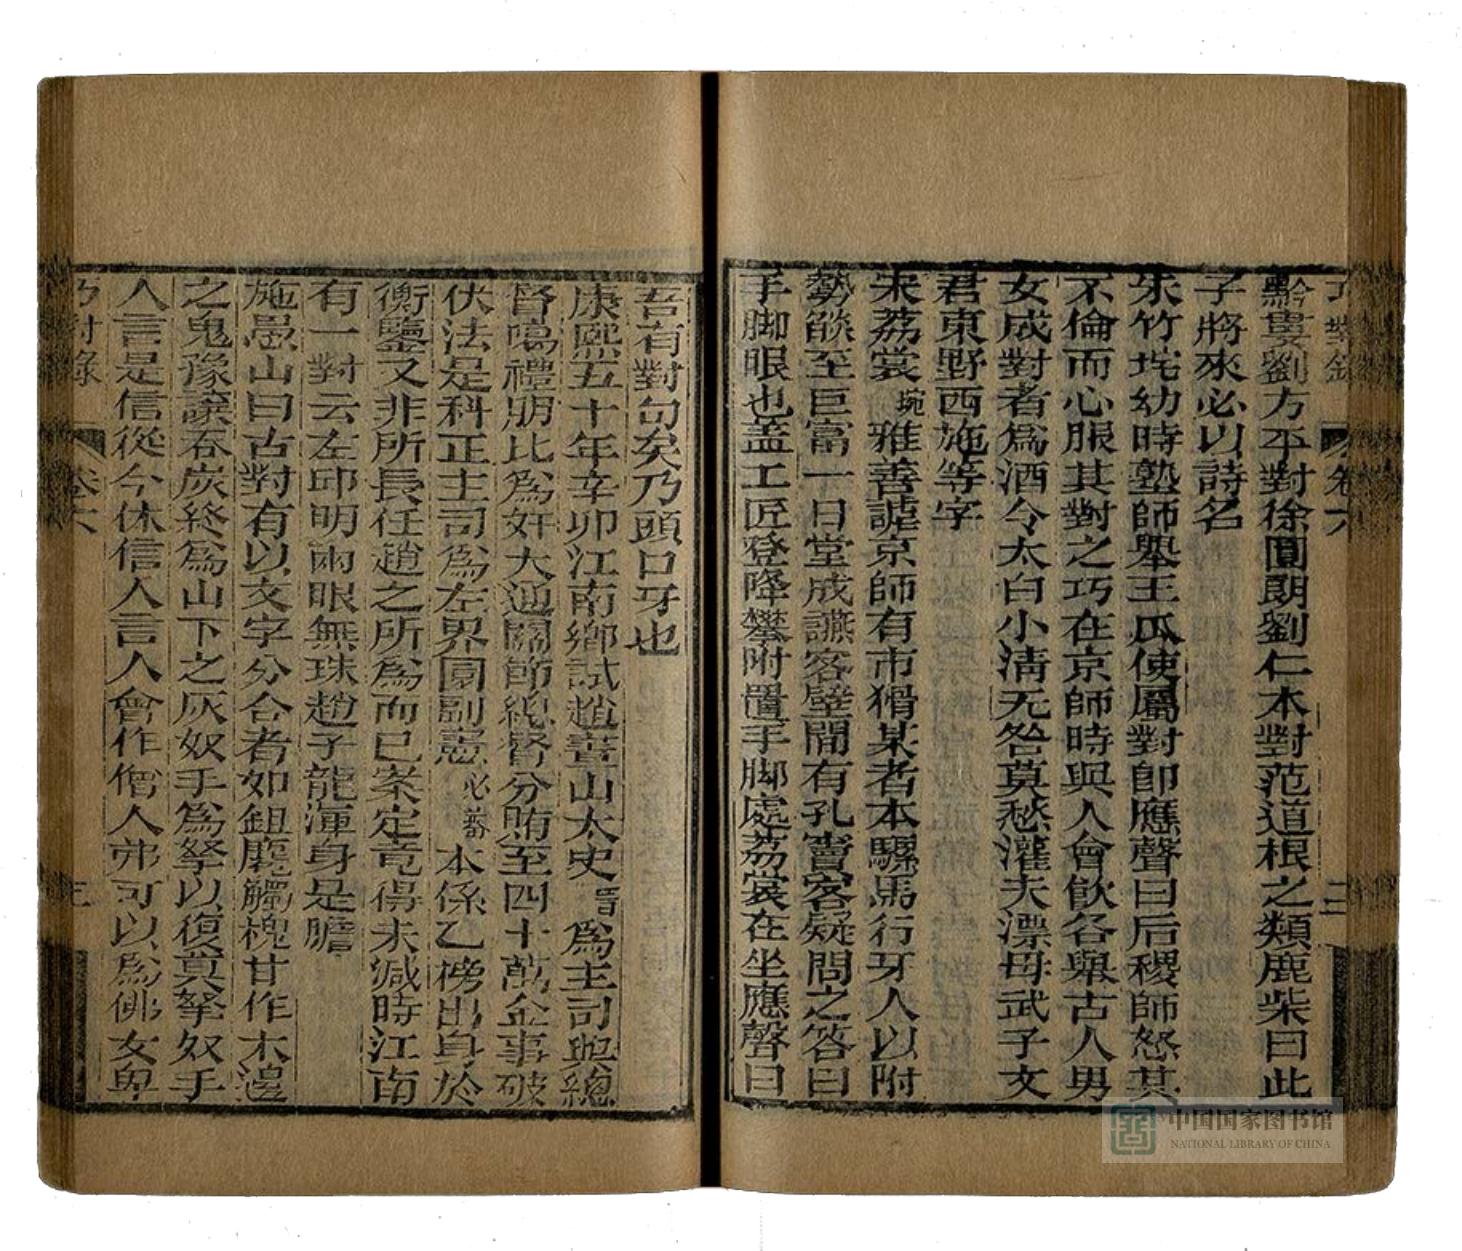 巧對錄
卷六
黔婁劉方平對徐圓朗劉仁本對范道根之類鹿柴曰此
子將來必以詩名
朱竹垞幼時塾師舉王瓜使屬對即應聲曰后稷師怒其
不倫而心服其對之巧在京師時與人會飲各舉古人男
女成對者爲酒令太白小淸无咎莫愁灌夫漂母武子文
君東野西施等字
宋荔裳琬雅善謔京師有市猾某者本騾馬行牙人以附
勢餤至巨富一日堂成讌客壁閒有孔竇客疑問之答曰
手脚眼也蓋工匠登降攀附置手脚處荔裳在坐應聲曰
吾有對句矣乃頭口牙也
康熙五十年辛卯江南鄉試趙晝山太史晉爲主司與總
督噶禮朋比爲奸大通關節總督分賄至四十萬金事破
伏法是科正主司爲左界園副憲必蕃本係乙榜出身於
衡鑒又非所長任趙之所爲而已案定竟得未減時江南
有一對云左邱明兩眼無珠趙子龍渾身是膽
施愚山曰古對有以文字分合者如鉏麑觸槐甘作木邊
之鬼豫讓吞炭終爲山下之灰奴手爲拏以復莫拏奴手
人言是信從今休信人言人會作僧人弗可以爲佛女卑
巧對錄
卷六
三
中国国家图书馆
NATIONAL LIBRARY OF CHINA